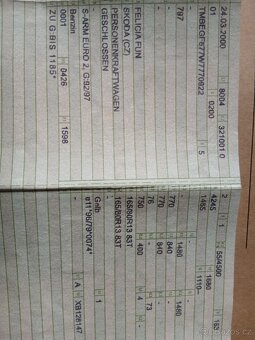 24.03.2000
01 8004 321001 0
0200
TMBEGF677W7770922 5
797
-
FELICIA FUN
SKODA (CZ)
PERSONENKRAFTWAGEN
GESCHLOSSEN
-
S-ARM EURO 2, G:92/97
Benzin
0001 0426 1598
ZU G:BIS 1185*
2 1 55/4500 163
4245 1680
1485 1110-
-
- 1480 - 1480
770 - 840 -
770 - 840
76 73
750 400 4
165/80R13 83T
165/80R13 83T
-
-
Gnib 1
e11*96/79*0074*
- A XB128147